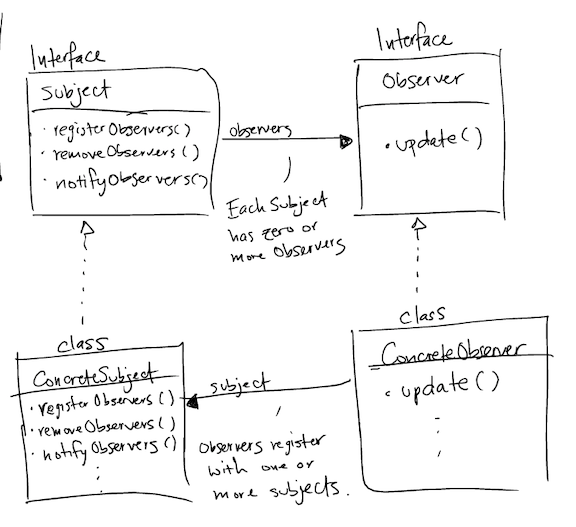 Interface
Subject
· registerObservers()
· removeObservers()
· notifyObservers()
observers
Each Subject
has zero or
more Observers
Interface
Observer
· update()
class
ConcreteSubject
· registerObservers()
· removeObservers()
· notifyObservers()
subject
Observers register
with one or
more subjects.
class
ConcreteObserver
· update()